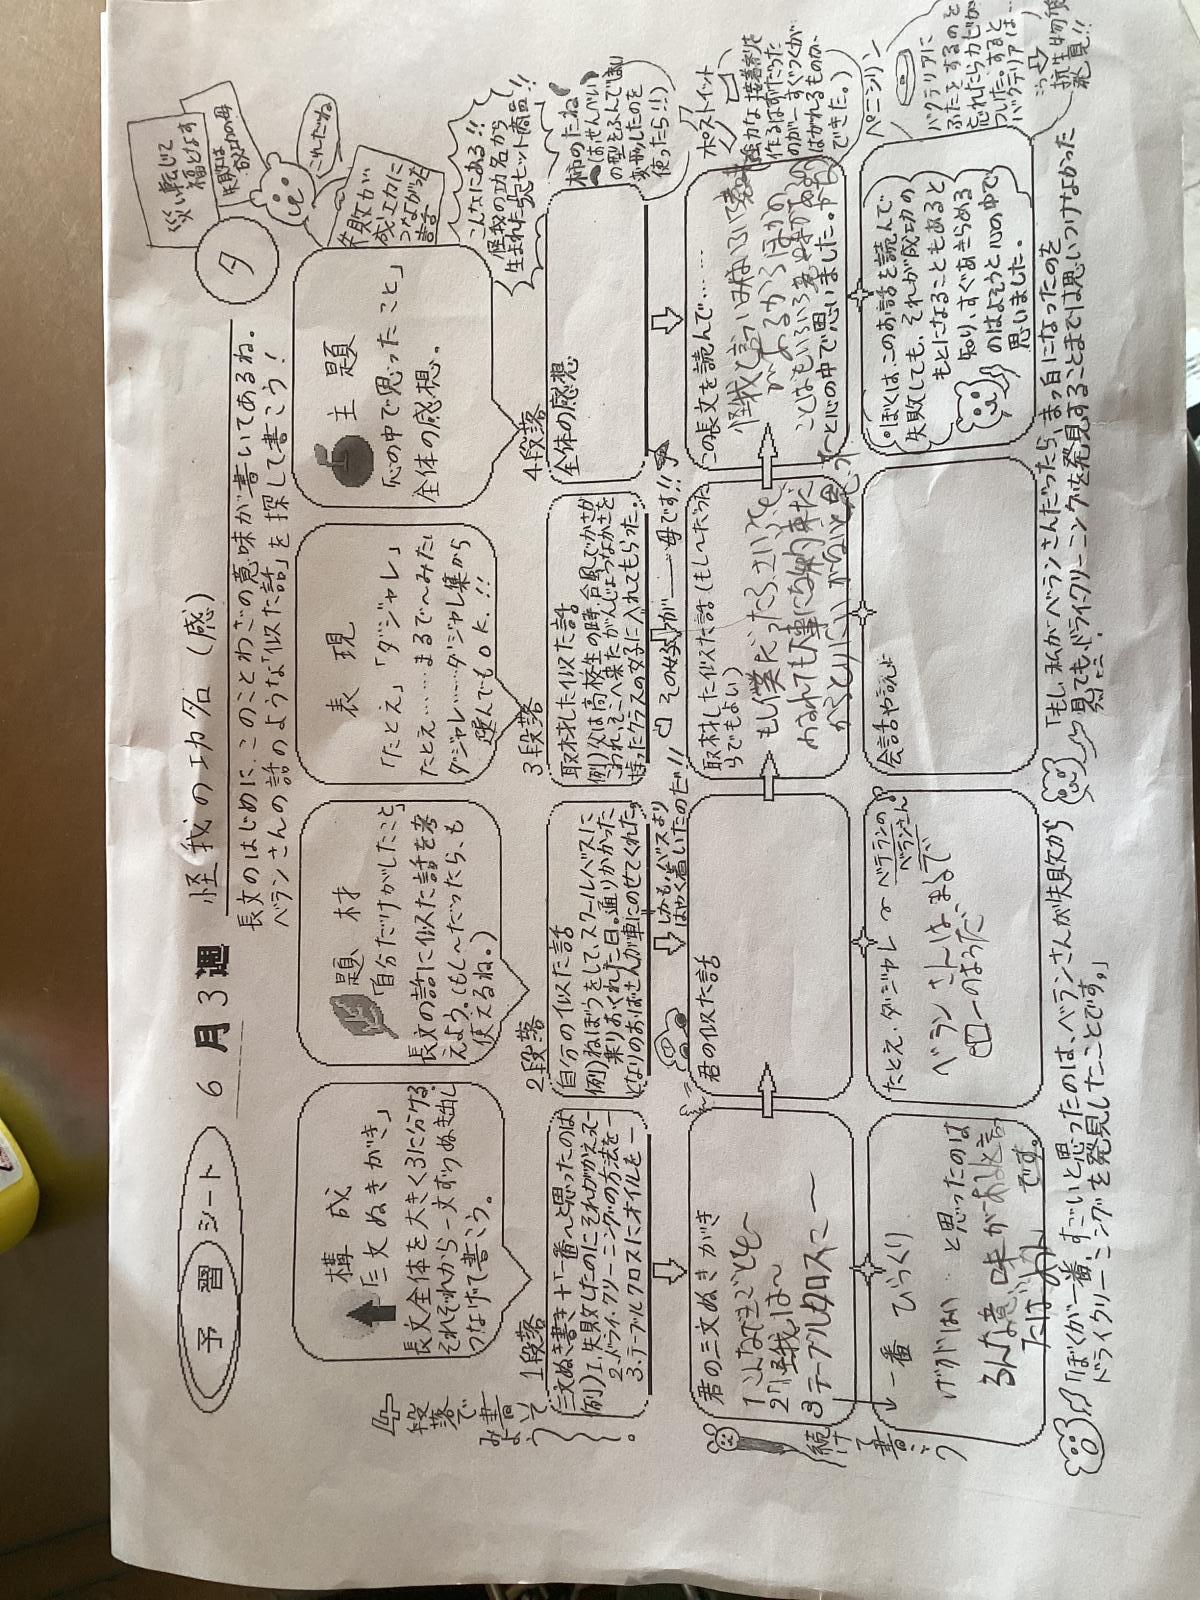 予習シート
6月3週
怪我の功名(感)
夕
長文のはじめに、このことわざの意味が書いてあるね。
ベランさんの話のような「似た話」を探して書こう!
災い転じて
福となす
失敗は
成功の母
これだね
失敗が
成功に
つながった
話
4段落で書いてみよう。
構成
「三文ぬきがき」
長文全体を大きく3に分ける。
それぞれから一文ずつぬき出し
つなげて書こう。
題材
「自分だけがしたこと」
長文の話に似た話を考
えよう。(もし〜だったら、も
使えるね。)
表現
「たとえ」「ダジャレ」
たとえ……まるで〜みたい
ダジャレ……ダジャレ集から
選んでもOK.!!
主題
「心の中で思ったこと」
全体の感想。
こんなにある!!
怪我の功名から
生まれた大ヒット商品!!
1段落
三文ぬき書き+「一番〜と思ったのは
例)1. 失敗したのにそれがかえって—
2. ドライ・クリーニングの方法を—
3. テーブルクロスにオイルを—
2段落
自分の似た話
例)ねぼうをして、スクールバスに
乗りおくれた日。通りかかった
となりのおばさんが車にのせてくれた。
しかも、バスより
はやく着いたのだ!!
3段落
取材した似た話
例)父は高校生の時、台風でかさが
こわれ、そこへ来たがんじょうなかさを
持ったクラスの女子に入れてもらった。
その女子が——母です!!
4段落
全体の感想
柿のたね
(はせんべい
の型をふんで
変形したのを
使ったら!!)
ポストイット
強力な接着剤を
作るはずだった
のが…すぐくっつくが
はがれるものが、
できた。)
ペニシリン
バクテリアに
ふたをするのを
忘れたらカビが
ついた。すると
バクテリアは…
抗生物質
発見!!
君の三文ぬきがき
1こんなできごとを〜
2「怪我は〜
3テーブルクロスに〜
続けて書こう
君の似た話
取材した似た話(もし〜だった
らでもよい)
もし僕だったらさいふを
この長文を読んで……
ことばもいろいろ意味がある
と心の中で思いました。
一番 びっくり
と思ったのは
です。
たとえ、ダジャレ
ベテランの
ベランさん。
ベランさんは、まるで
のようだ。
会話や説明
「ぼくは、このお話を読んで
失敗しても、それが成功の
もとになることもあると
知り、すぐあきらめる
のはよそうと心の中で
思いました。
「ぼくが一番、すごいと思ったのは、ベランさんが失敗から
ドライクリーニングを発見したことです。」
「もし、私がベランさんだったら、まっ白になったのを
見ても、ドライクリーニングを発見することまでは思いつけなかった